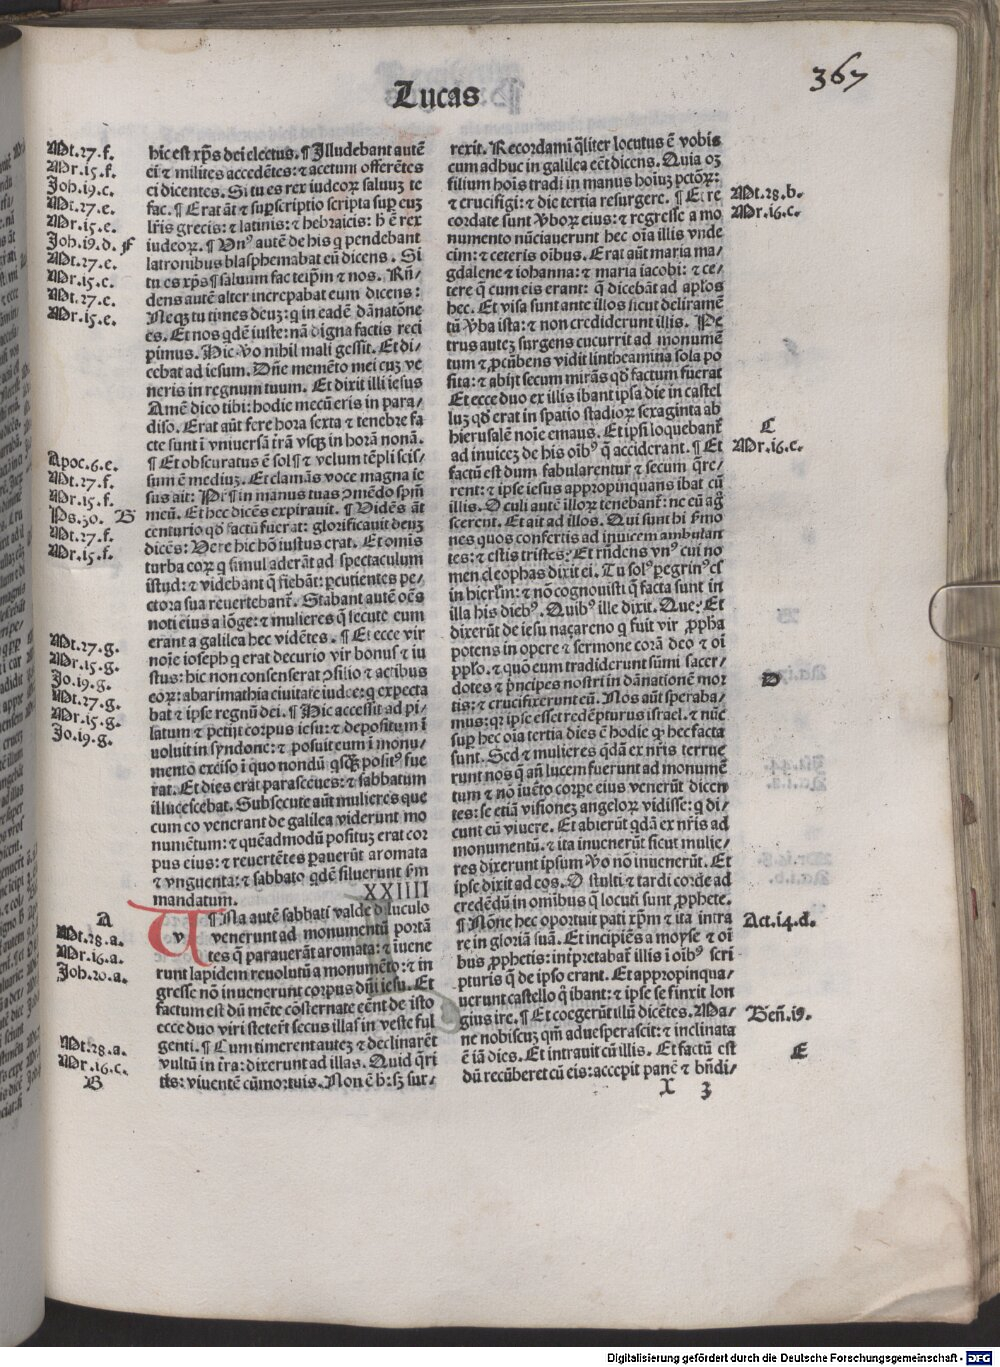 Lucas
367
Mt.27.f.
Mr.15.f.
Joh.19.c.
Mt.27.e.
Mr.15.e.
Joh.19.d. F
Mt.27.e.
Mr.15.c.
Mt.27.e.
Mr.15.e.
Apoc.6.e.
Mt.27.f.
Mr.15.f.
Ps.30. G
Mt.27.f.
Mr.15.f.
Mt.27.g.
Mr.15.g.
Jo.19.g.
Mt.27.g.
Mr.15.g.
Jo.19.g.
A
Mt.28.a.
Mr.16.a.
Joh.20.a.
Mt.28.a.
Mr.16.c.
B
hic est xp̄s dei electus. ¶ Illudebant autē
ei⁊ milites accedētes: ⁊ acetum offerētes
ei dicentes. Si tu es rex iudeoꝝ saluuꝫ te
fac. ¶ Erat āt ⁊ suꝑscriptio scripta suꝑ euꝫ
lr̄is grecis: ⁊ latinis: ⁊ hebraicis: h̄ ē rex
iudeoꝝ. ¶ Vnꝰ autē de his q̄ pendebant
latronibus blasphemabat eū dicens. Si
tu es xp̄s ¶ saluum fac teip̄m ⁊ nos. Rn̄/
dens autē alter increpabat eum dicens:
Neqꝫ tu times deuꝫ: q̄ in eadē dānatōne
es. Et nos qdē iuste: nā digna factis reci
pimus. Hic v̄o nihil mali gessit. Et di/
cebat ad iesum. Dn̄e memēto mei cuꝫ ve
neris in regnum tuum. Et dixit illi iesus
Amē dico tibi: hodie mecū eris in para/
diso. Erat aūt fere hora sexta ⁊ tenebre fa
cte sunt ī vniuersā trā vsqꝫ in horā nonā.
¶ Et obscuratus ē sol ¶ ⁊ velum tēpli scis/
sum ē mediuꝫ. Et clamās voce magna ie
sus ait: P̄r ¶ in manus tuas ꝯmēdo spm̄
meū. Et hec dicēs expirauit. ¶ Vidēs āt
centurio qd̄ factū fuerat: glorificauit deuꝫ
dicēs: Vere hic hō iustus erat. Et omīs
turba eoꝝ q̄ simul aderāt ad spectaculum
istud: ⁊ videbant q̄ fiebāt: ꝑcutientes pe/
ctora sua reuertebant᷑. Stabant autē oēs
noti eius a lōge: ⁊ mulieres q̄ secute eum
erant a galilea hec vidētes. ¶ Et ecce vir
noīe ioseph q̄ erat decurio vir bonus ⁊ iu
stus: hic non consenserat ꝯsilio ⁊ actibus
eoꝝ: ab arimathia ciuitate iudee: q̄ expecta
bat ⁊ ipse regnū dei. ¶ Hic accessit ad pi/
latum ⁊ petijt corpus iesu: ⁊ depositum ī
uoluit in syndone: ⁊ posuit eum ī monu/
mento exciso ī quo nondū qsqꝫ positꝰ fue
rat. Et dies erāt parasceues: ⁊ sabbatum
illucescebat. Subsecute aūt mulieres que
cum eo venerant de galilea viderunt mo
numētum: ⁊ quēadmodū posituꝫ erat cor
pus eius: ⁊ reuertētes ꝑauerūt aromata
⁊ vnguenta: ⁊ sabbato qdē siluerunt s̄m
mandatum. XXIIII
V v ¶ Na autē sabbati valde diluculo
venerunt ad monumētū portā
tes q̄ parauerāt aromata: ⁊ inuene
runt lapidem reuolutū a monumēto: ⁊ in
gresse nō inuenerunt corpus dn̄i iesu. Et
factum est dū mēte cōsternate eēnt de isto
ecce duo viri steter̄t secus illas ī veste ful
genti. ¶ Cum timerent autez ⁊ declinarēt
vultū in trā: dixerunt ad illas. Quid q̄ri
tis: viuentē cū mortuis. Non ē h̄: sꝫ sur/
rexit. Recordamī q̄liter locutus ē vobis
cum adhuc in galilea eēt dicens. Quia oꝫ
filium hoīs tradi in manus hoīuꝫ pctōꝝ:
⁊ crucifigi: ⁊ die tertia resurgere. ¶ Et re
cordate sunt v̄boꝝ eius: ⁊ regresse a mo
numento nūciauerunt hec oīa illis vnde
cim: ⁊ ceteris oībus. Erat aūt maria ma/
gdalene ⁊ iohanna: ⁊ maria iacobi: ⁊ ce/
tere q̄ cum eis erant: q̄ dicebāt ad apl̄os
hec. Et visa sunt ante illos sicut deliramē
tū v̄ba ista: ⁊ non crediderunt illis. Pe
trus autez surgens cucurrit ad monumē
tum ⁊ ꝓcūbens vidit lintheamina sola po
sita: ⁊ abijt secum mirās qd̄ factum fuerat
Et ecce duo ex illis ibant ipsa die in castel
luꝫ qd̄ erat in spatio stadioꝝ sexaginta ab
hierusalē noīe emaus. Et ipsi loquebant᷑
ad inuicez de his oībꝰ q̄ acciderant. ¶ Et
factū est dum fabularentur ⁊ secum q̄re/
rent: ⁊ ipse iesus appropinquans ibat cū
illis. Oculi autē illoꝝ tenebant᷑: ne eū aḡ
scerent. Et ait ad illos. Qui sunt hi s̄mo
nes quos confertis ad inuicem ambulan
tes: ⁊ estis tristes? Et rn̄dens vnꝰ cui no
men cleophas dixit ei. Tu solꝰ peregrinꝰ es
in hierl̄m: ⁊ nō cognouisti q̄ facta sunt in
illa his diebꝰ. Quibꝰ ille dixit. Que? Et
dixerūt de iesu naçareno q̄ fuit vir ꝓpha
potens in opere ⁊ sermone corā deo ⁊ oī
pplo. ⁊ quō eum tradiderunt sūmi sacer/
dotes ⁊ pncipes nostri in dānationē mor
tis: ⁊ crucifixerunt eū. Nos aūt speraba/
mus: qꝛ ipse esset redēpturus israel. ⁊ nūc
suꝑ hec oīa tertia dies ē hodie q̄ hec facta
sunt. Sed ⁊ mulieres qdā ex nr̄is terrue
runt nos q̄ an̄ lucem fuerunt ad monumē
tum ⁊ nō īuēto corꝑe eius venerūt dicen
tes: se etiā visionez angeloꝝ vidisse: q̄ di/
cunt eū viuere. Et abierūt qdā ex nr̄is ad
monumētū. ⁊ ita inuenerūt sicut mulie/
res dixerunt ipsum v̄o nō inuenerūt. Et
ipse dixit ad eos. O stulti ⁊ tardi corde ad
credēdū in omībus q̄ locuti sunt ꝓphete.
¶ Nōne hec oportuit pati xp̄m ⁊ ita intra
re in gloriā suā. Et incipiēs a moyse ⁊ oī
bus ꝓphetis: int̄pretabat᷑ illis ī oībꝰ scri
pturis q̄ de ipso erant. Et appropinqua/
uerunt castello q̄ ibant: ⁊ ipse se finxit lon
gius ire. ¶ Et coegerūt illū dicētes. Ma/
ne nobiscuꝫ qm̄ aduesperascit: ⁊ inclinata
ē iā dies. Et intrauit cū illis. Et factū est
dū recūberet cū eis: accepit panē ⁊ bn̄di/
X 3
Mt.28.b.
Mr.16.c.
C
Mr.16.c.
D
Act.14.d.
Gen̄.19.
E
Digitalisierung gefördert durch die Deutsche Forschungsgemeinschaft - DFG